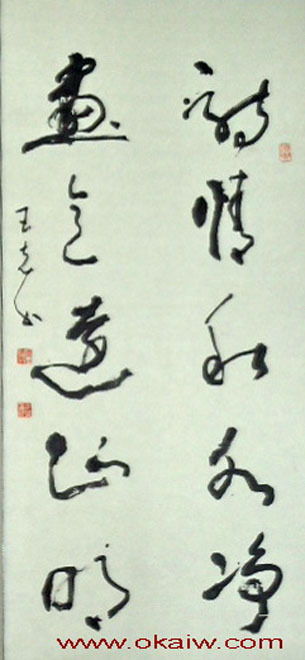 詩情秋水净
畫意遠山明
王克书
www.okaiw.com